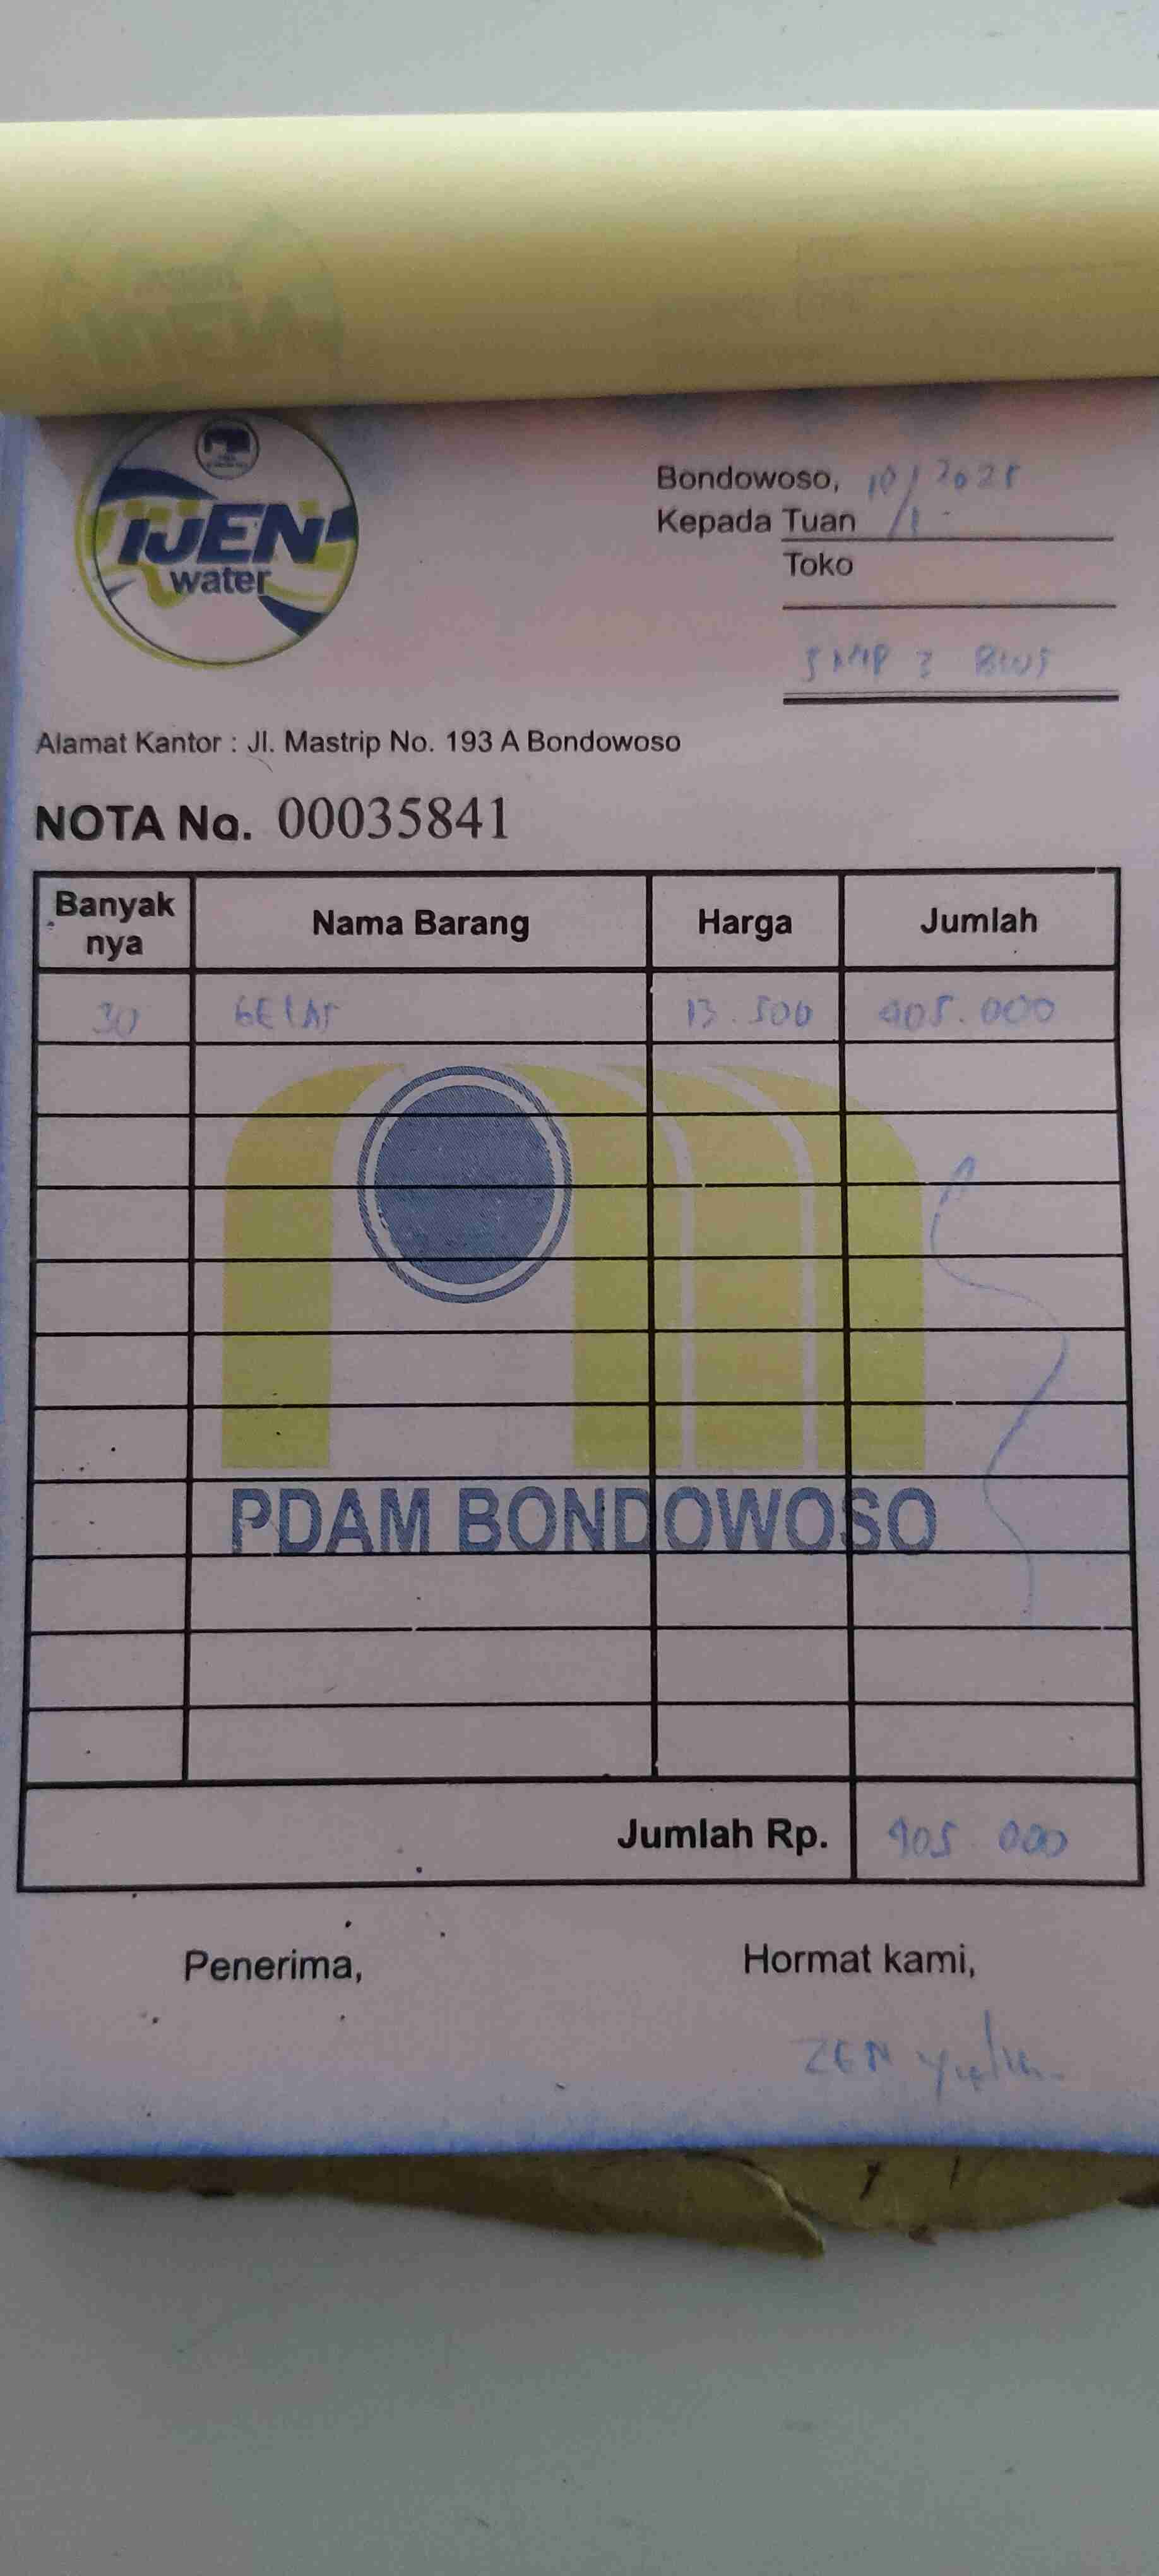 IJEN
water
Bondowoso, 10/1 2025
Kepada Tuan
Toko
SMP 3 BWS
Alamat Kantor : Jl. Mastrip No. 193 A Bondowoso
NOTA No. 00035841
Banyak nya Nama Barang Harga Jumlah
30 GELAS 13.500 405.000
PDAM BONDOWOSO
Jumlah Rp. 405 000
Penerima, Hormat kami,
ZEN